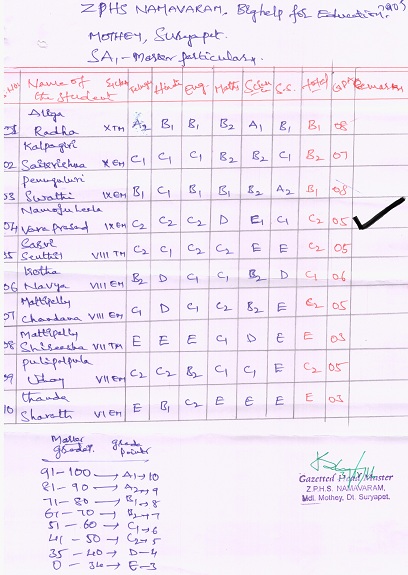 ZPHS NAMAVARAM, Big help for Education,
MOTHEY, Suryapet.
SA1 - Master particulars.
Name of the Student Telugu Hindi Eng Maths S.S. Total GPA Remarks
Radha X TM A2 B1 B1 B2 A1 B1 B1 08
Kalpagiri
02 Saikrishna X EM C1 C1 C1 B2 B2 C1 B1 07
Penuguluri
03 Swathi IX EM B1 C1 B1 B1 B2 A2 B1 08
Vara Prasad IX EM C2 C2 C2 D E1 C1 C2 05
VIII TM C2 C2 C1 C2 E E C2 05
Kotha
06 Navya VIII EM B2 D C1 C1 B2 D C1 06
Mattipelly
07 Chandana VIII EM C1 D C1 C2 B2 E C2 05
Mattipelly
08 Shireesha VIII TM E E E C1 D E E 03
09 Uday VII EM C2 C2 B2 C1 C1 E C2 05
Thanda
10 Sharath VI EM E B1 C2 E E E E 03
Master grades. grade points
91-100 → A1 → 10
81-90 → A2 → 9
71-80 → B1 → 8
61-70 → B2 → 7
51-60 → C1 → 6
41-50 → C2 → 5
35-40 → D-4
0-34 → E-3
Gazetted Head Master
Z.P.H.S. NAMAVARAM,
Mdl. Mothey, Dt. Suryapet.